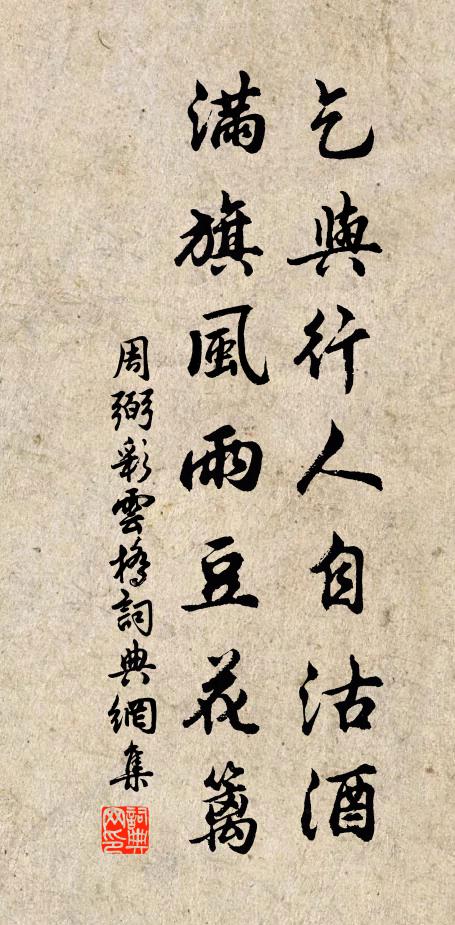 乞與行人自沽酒
滿旗風雨豆花籬
周弼彩雲橋詞典網集
詞典網印